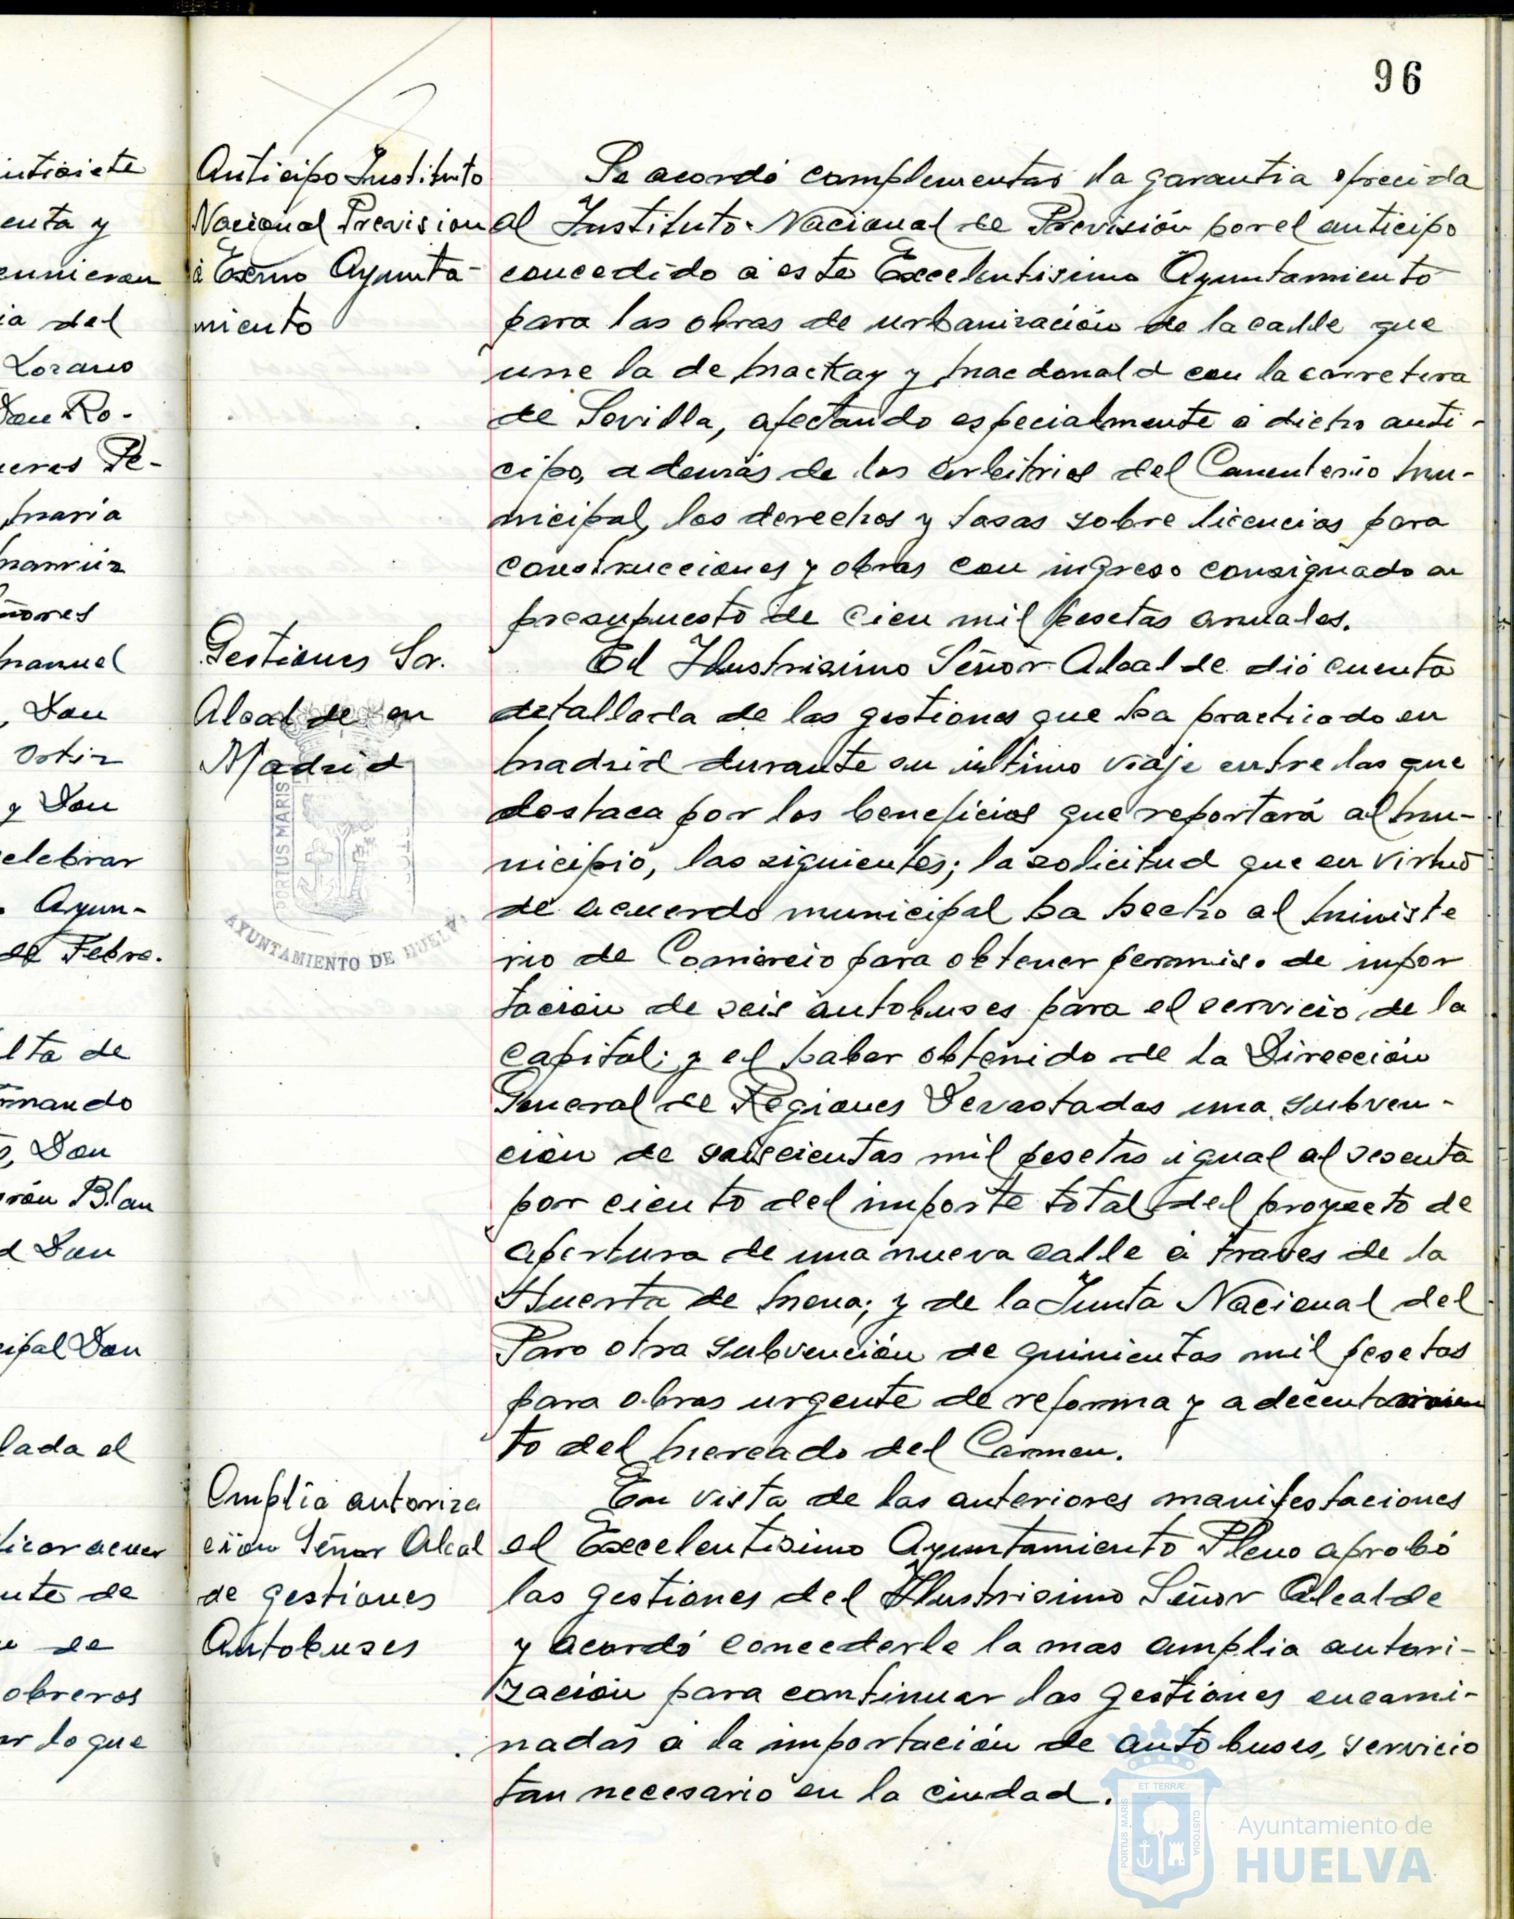 96
intisiete
enta y
eunieron
ia del
Lozano
Don Ro-
Pe-
maria
ñores
manuel
, Don
Ortiz
y Don
elebrar
Ayun-
de Febre.
lta de
rnando
, Don
Blan
d Don
cipal Don
lada el
ticar acuer
nte de
de
obreros
ar lo que
Anticipo Instituto
Nacional Prevision
á Excmo Ayunta-
miento
Se acordó complementar la garantia ofrecida
al Instituto Nacional de Previsión por el anticipo
concedido á este Excelentisimo Ayuntamiento
para las obras de urbanización de la calle que
une la de Mackay y Macdonald con la carretera
de Sevilla, afectando especialmente á dicho anti-
cipo, además de los arbitrios del Cementerio Mu-
nicipal, los derechos y tasas sobre licencias para
construcciones y obras con ingreso consignado en
presupuesto de cien mil pesetas anuales.
Gestiones Sr.
Alcalde en
Madrid
El Ilustrisimo Señor Alcalde dió cuenta
detallada de las gestiones que ha practicado en
Madrid durante su último viaje entre las que
destaca por los beneficios que reportará al Mu-
nicipio, las siguientes; la solicitud que en virtud
de acuerdo municipal ha hecho al Ministe
rio de Comercio para obtener permiso de impor
tación de seis autobuses para el servicio de la
capital; y el haber obtenido de la Dirección
General de Regiones Devastadas una subven-
ción de seiscientas mil pesetas igual al sesenta
por ciento del importe total del proyecto de
apertura de una nueva calle á traves de la
Huerta de Mena; y de la Junta Nacional del
Paro otra subvención de quinientas mil pesetas
para obras urgente de reforma y adecentamien
to del Mercado del Carmen.
Amplia autoriza
ción Señor Alcal
de gestiones
Autobuses
En vista de las anteriores manifestaciones
el Excelentisimo Ayuntamiento Pleno aprobó
las gestiones del Ilustrisimo Señor Alcalde
y acordó concederle la mas amplia autori-
zación para continuar las gestiones encami-
nadas á la importación de autobuses, servicio
tan necesario en la ciudad.
PORTUS MARIS
AYUNTAMIENTO DE HUELVA
ET TERRÆ
PORTUS MARIS
CUSTODIA
Ayuntamiento de
HUELVA